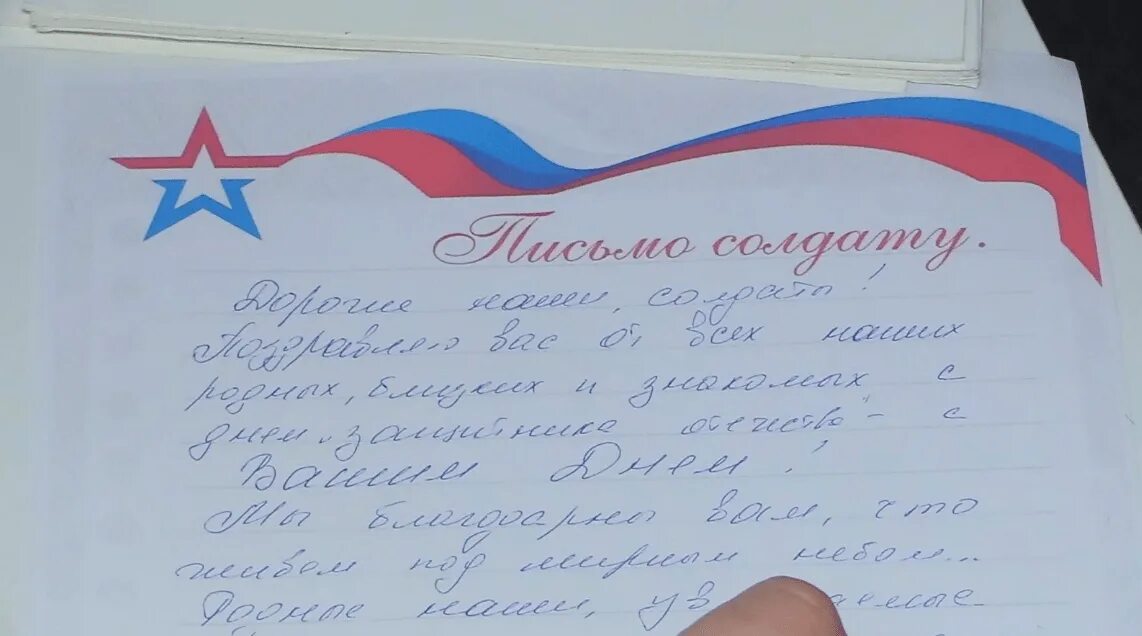 Письмо солдату.
Дорогие наши, солдаты!
Поздравляю вас от всех наших
родных, близких и знакомых с
днем "защитника отечества" - с
Вашим Днем!
Мы благодарны вам, что
живем под мирным небом...
Родные наши,